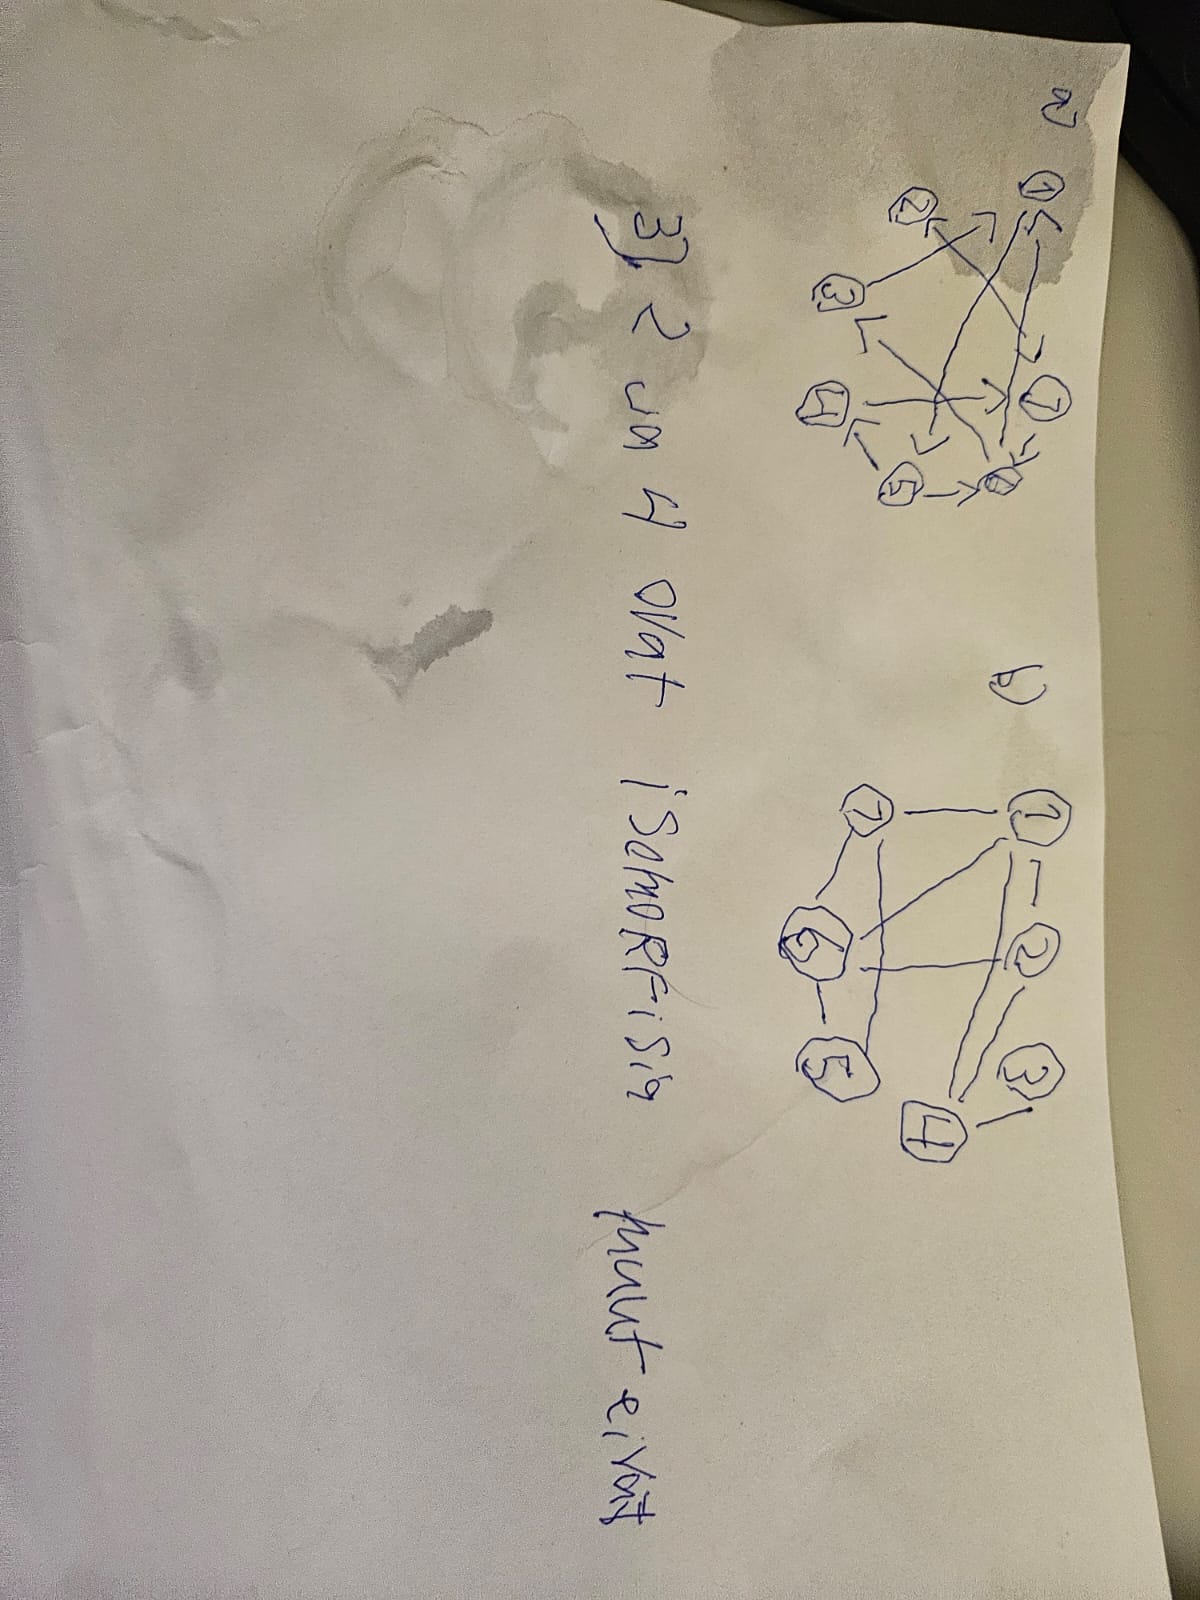 a)
1 7
2 6
3 5
4
b)
1 2 3
4
7 6 5
3) 2 ja 4 ovat isomoRFisia muut eivät